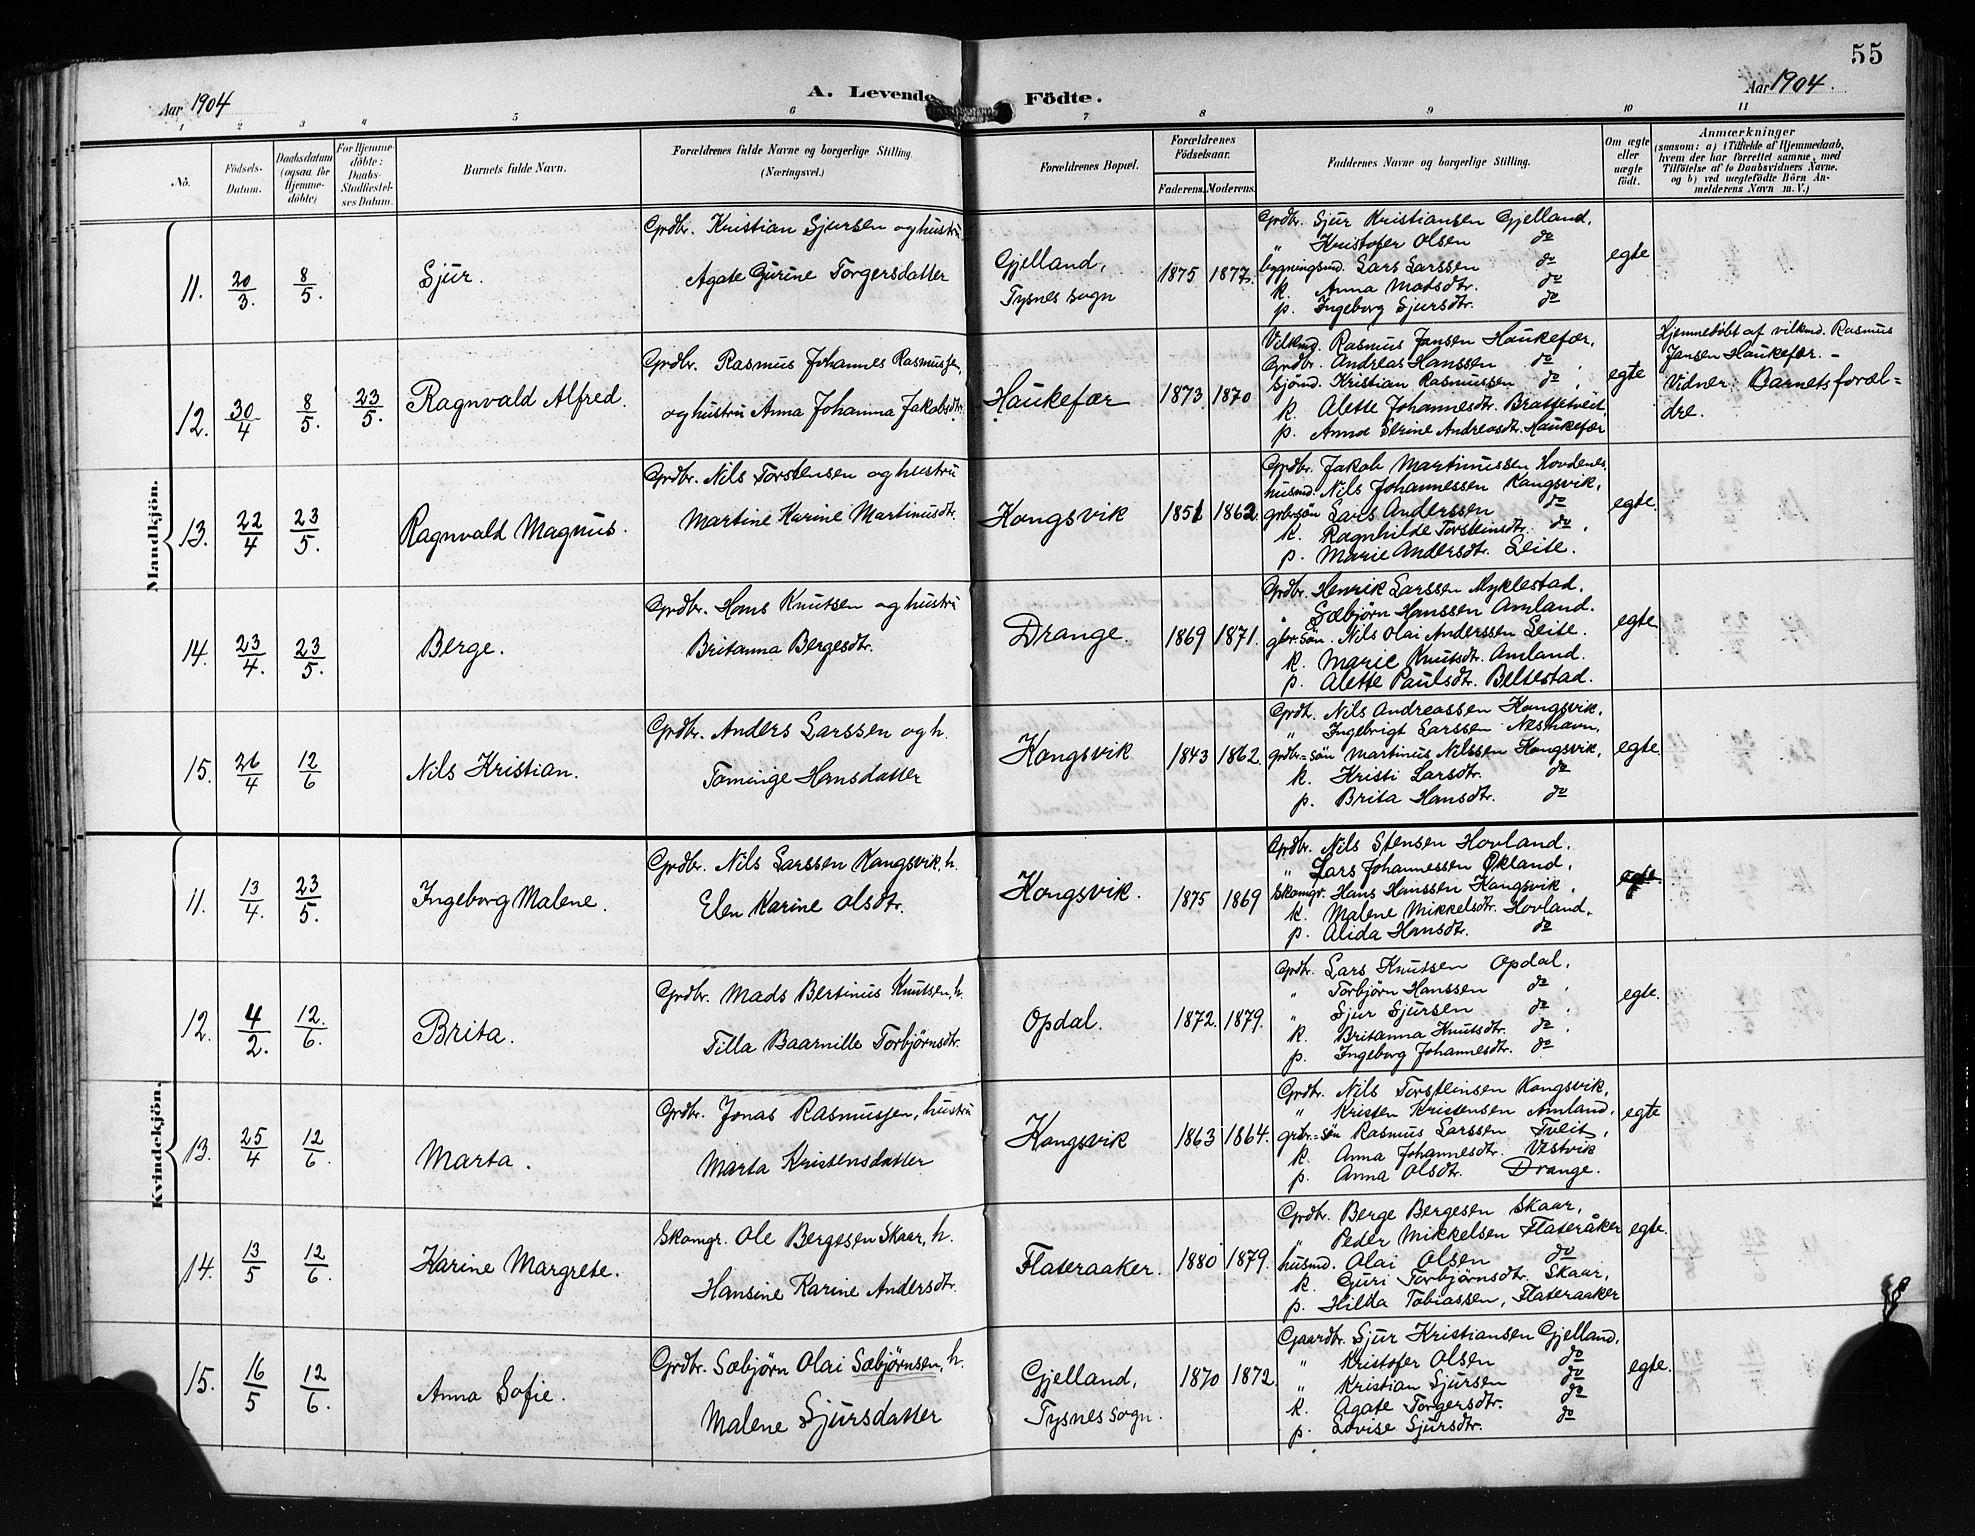 55
Aar 1904
A. Levende Födte.
Aar 1904.
1 2 3 4 5 6 7 8 9 10 11
No.
Födsels-
Datum.
Daabsdatum
(ogsaa for
Hjemme-
döbte)
For Hjemme-
döbte:
Daabs-
Stadfæstel-
ses Datum.
Barnets fulde Navn.
Forældrenes fulde Navne og borgerlige Stilling.
(Næringsvei.)
Forældrenes Bopæl.
Forældrenes
Födselsaar.
Faderens. Moderens.
Faddernes Navne og borgerlige Stilling.
Om ægte
eller
uægte
födt.
Anmærkninger
(saasom: a) i Tilfælde af Hjemmedaab,
hvem der har forrettet samme, med
Tilföielse af to Daabsvidners Navne,
og b) ved uægtefödte Börn An-
melderens Navn m. V.)
Mandkjön.
11. 20/3. 8/5. Sjur.
Grdbr. Kristian Sjursen og hustru
Agate Gurine Torgersdatter
Gjelland,
Tysnes sogn
1875 1877.
Grdbr. Sjur Kristiansen Gjelland,
„ Kristofer Olsen do
bygningsmd. Lars Larssen do
k. Anna Madsdtr. do
p. Ingeborg Sjursdtr. do
egte
12. 30/4 8/5. 23/5. Ragnvald Alfred.
Grdbr. Rasmus Johannes Rasmussen,
og hustru Anna Johanna Jakobsdtr.
Haukefær
1873. 1870
Vilkmd. Rasmus Jansen Haukefær,
Grdbr. Andreas Hanssen do,
sjömd. Kristian Rasmussen do,
k. Alette Johannesdtr. Brattetveit,
p. Anna Serine Andreasdtr. Haukefær
egte
Hjemmedöbt af vilkmd. Rasmus
Jansen Haukefær. –
Vidner: Barnets foræl=
dre.
13. 22/4 23/5. Ragnvald Magnus.
Grdbr. Nils Torstensen og hustru
Martine Karine Martinusdtr.
Kongsvik
1851 1862.
Grdbr. Jakob Martinussen Hovdenes,
husmd. Nils Johannessen Kangsvik,
grbrsön Lars Anderssen do
k. Ragnhilde Torsteinsdtr. do,
p. Marie Andersdtr. Leite.
egte.
14. 23/4. 23/5. Berge.
Grdbr. Hans Knutsen og hustru
Britanna Bergesdtr.
Drange.
1869 1871.
Grdbr. Henrik Larssen Myklestad.
„ Sæbjørn Hanssen Amland.
gbr.sön. Nils Olai Anderssen Leite.
k. Marie Knutsdtr. Amland.
p. Alette Paulsdtr. Beltestad.
egte.
15. 26/4 12/6 Nils Kristian.
Grdbr. Anders Larssen og h.
Taminge Hansdatter
Kongsvik
1843 1862.
Grdb. Nils Andreassen Kongsvik,
„ Ingebrigt Larssen Næshavn,
grdbr=sön Martinus Nilssen Kongsvik,
k. Kristi Larsdtr. do
p. Brita Hansdtr. do
egte.
Kvindekjön.
11. 13/4. 23/5. Ingeborg Malene.
Grdbr. Nils Larssen Kangsvik, h.
Elen Karine Olsdtr.
Kongsvik.
1875 1869
Grdbr. Nils Stensen Hovland.
„ Lars Johannessen Økland,
Skomgr. Hans Hanssen Kangsvik,
k. Malene Mikkelsdtr. Hovland,
p. Alida Hansdtr. do
egte.
12. 4/2. 12./6. Brita.
Grdbr. Mads Bertinus Knutsen, h.
Tilla Baarnille Torbjörnsdtr.
Opdal.
1872. 1879.
Grdbr. Lars Knutsen Opdal,
„ Torbjörn Hanssen do,
„ Sjur Sjursen do,
k. Britanna Knutsdtr. do,
p. Ingeborg Johannesdtr. do
egte.
13. 25/4 12/6. Marta.
Grdbr. Jonas Rasmussen, hustru
Marta Kristensdatter
Kongsvik
1863 1864.
Grdbr. Nils Torsteinsen Kongsvik,
„ Kristen Kristensen Amland,
grbr=sön Rasmus Larssen Tveit,
k. Anna Johannesdtr. Vestvik
p. Anna Olsdtr. Drange.
egte
14. 13/5 12/6. Karine Margrete.
Skomgr. Ole Bergesen Skaar, h.
Hansine Karine Andersdtr.
Flateraaker.
1880 1879.
Grdbr. Berge Bergesen Skaar,
„ Peder Mikkelsen Flateråker
husmd. Olai Olsen do
k. Guri Torbjörnsdtr. Skaar,
p. Hilda Tobiassen, Flateraaker
egte.
15. 16/5 12/6. Anna Sofie.
Grdbr. Sæbjørn Olai Sæbjørnsen, h.
Malene Sjursdatter
Gjelland,
Tysnes sogn.
1870 1872.
Gaardbr. Sjur Kristiansen Gjelland,
„ Kristofer Olsen do
„ Kristian Sjursen do
k. Agate Torgersdtr. do
p. Lovise Sjursdtr. do
egte.